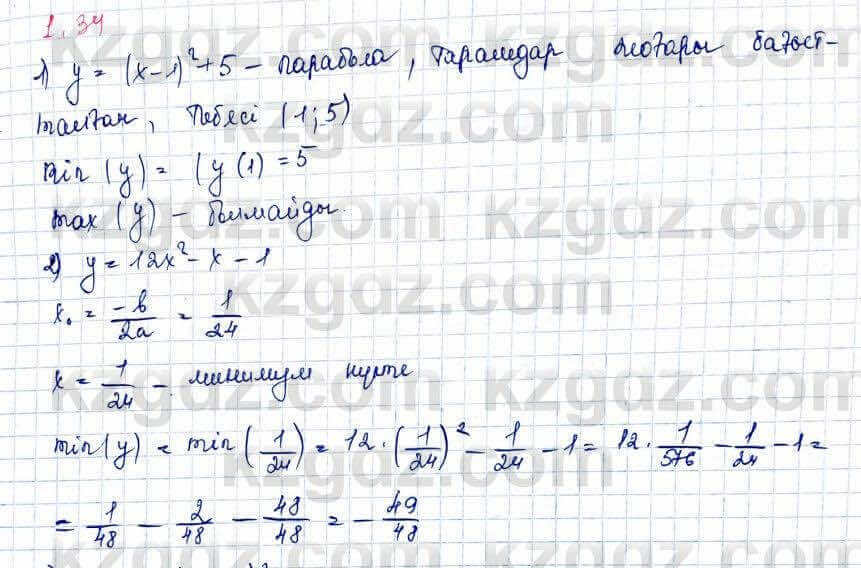 1.34
1) y = (x-1)²+5 - парабола, тарамдар жоғары бағыт-
талған, төбесі (1;5)
min (y) = (y (1) = 5
max (y) - болмайды.
2) y = 12x² - x - 1
x₀ = -b/2a = 1/24
x = 1/24 - минимум нүкте
min(y) = min(1/24) = 12·(1/24)² - 1/24 - 1 = 12·1/576 - 1/24 - 1 =
= 1/48 - 2/48 - 48/48 = -49/48
kzgdz.com